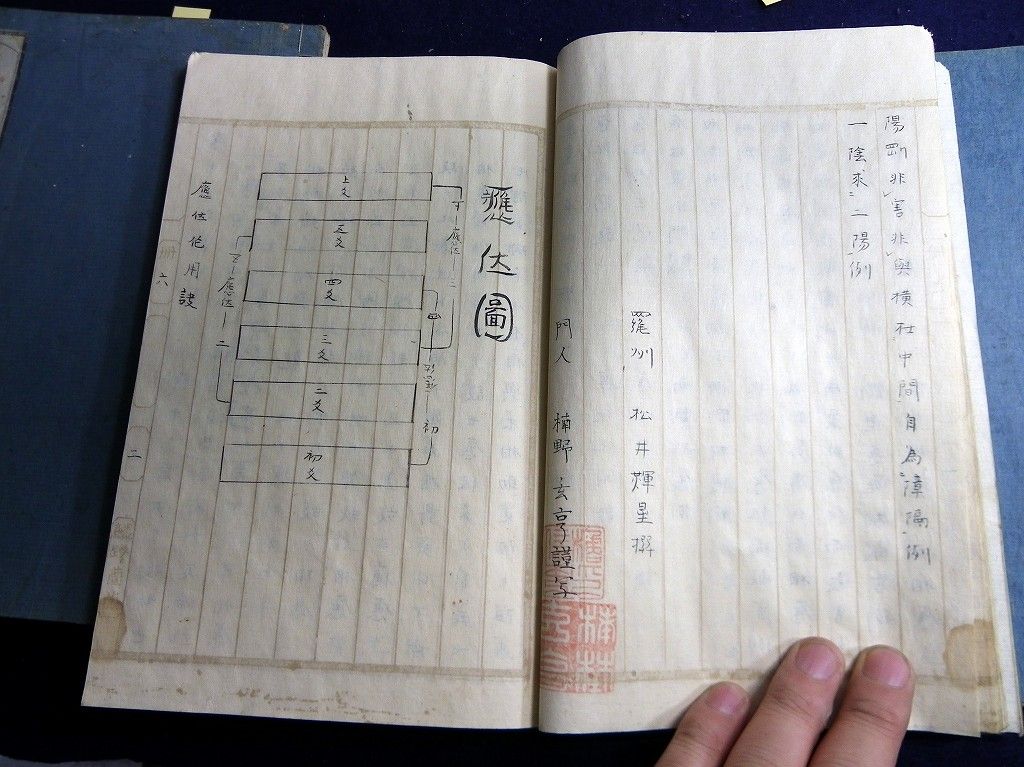 陽剛非害非與横在中間自為障隔例
一陰求二陽例
羅州 松井輝星撰
門人 楠野玄享謹写
應位圖
上爻
五爻
四爻
三爻
二爻
初爻
應位
三
四
初
五
應位
二
應位 用訣
六
二